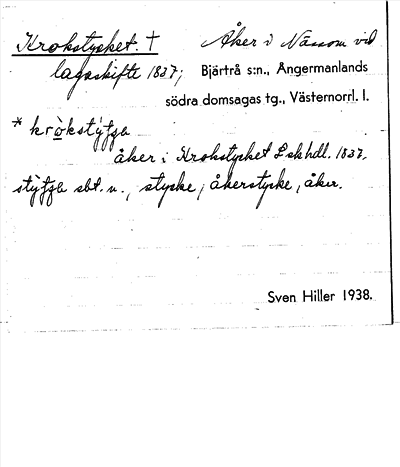 Krokstycket. † Åker i Nässom vid
lagaskifte 1837; Bjärtrå s:n., Ångermanlands
södra domsagas tg., Västernorrl. l.
* kròkstýʒʒa
åker i Krokstycket Lskhdl. 1837.
sbt. n., stycke, åkerstycke, åker.
Sven Hiller 1938.